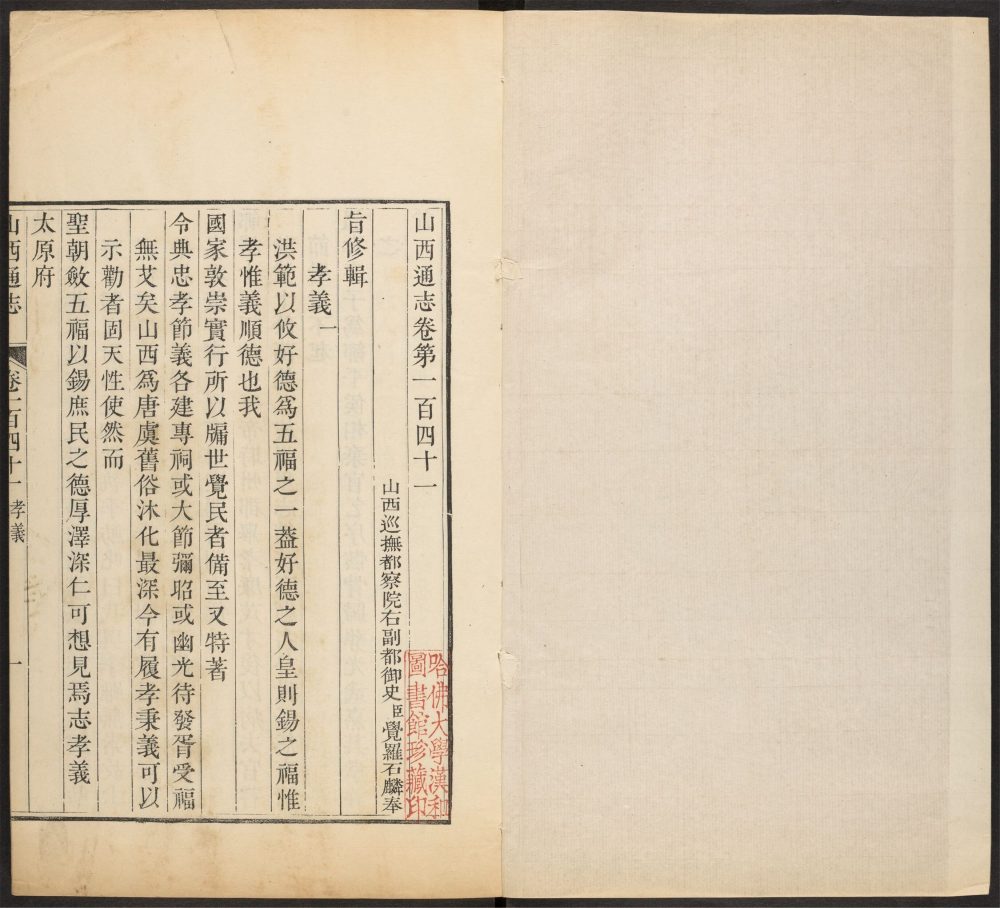 山西通志卷第一百四十一
山西巡撫都察院右副都御史臣覺羅石麟奉
旨修輯
孝義一
洪範以攸好德爲五福之一葢好德之人皇則錫之福惟
孝惟義順德也我
國家敦崇實行所以牖世覺民者備至又特著
令典忠孝節義各建專祠或大節彌昭或幽光待發胥受福
無艾矣山西爲唐虞舊俗沐化最深今有履孝秉義可以
示勸者固天性使然而
聖朝斂五福以錫庶民之德厚澤深仁可想見焉志孝義
太原府
山西通志
卷一百四十一 孝義
一
哈佛大學漢和
圖書館珍藏印